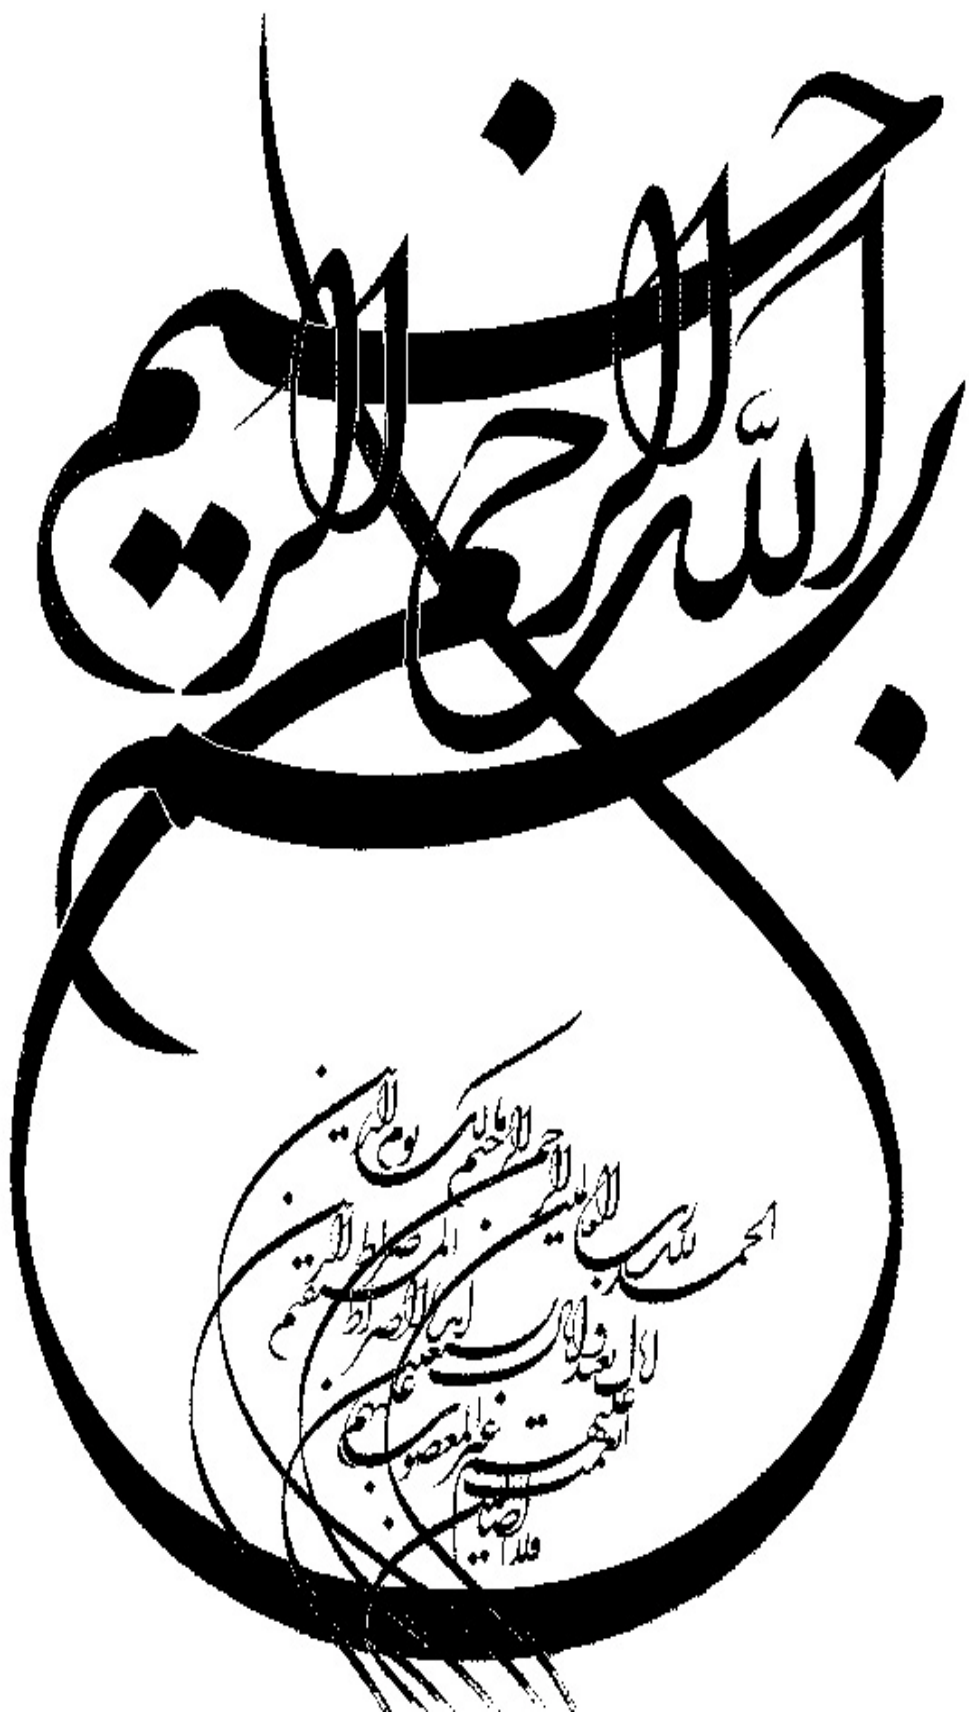 بسم الله الرحمن الرحيم
الحمد لله رب العالمين الرحمن الرحيم مالک يوم الدين
اياک نعبد و اياک نستعين اهدنا الصراط المستقيم صراط الذين
انعمت عليهم غير المغضوب عليهم
ولا الضالين